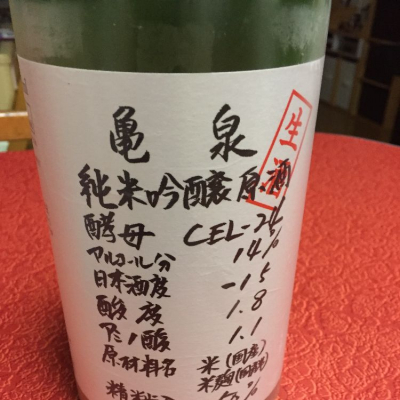 亀泉
生酒
純米吟醸原酒
酵母 CEL-24
アルコール分 14%
日本酒度 -15
酸度 1.8
アミノ酸 1.1
原材料名 米(国産)
米麹(国産)
精米